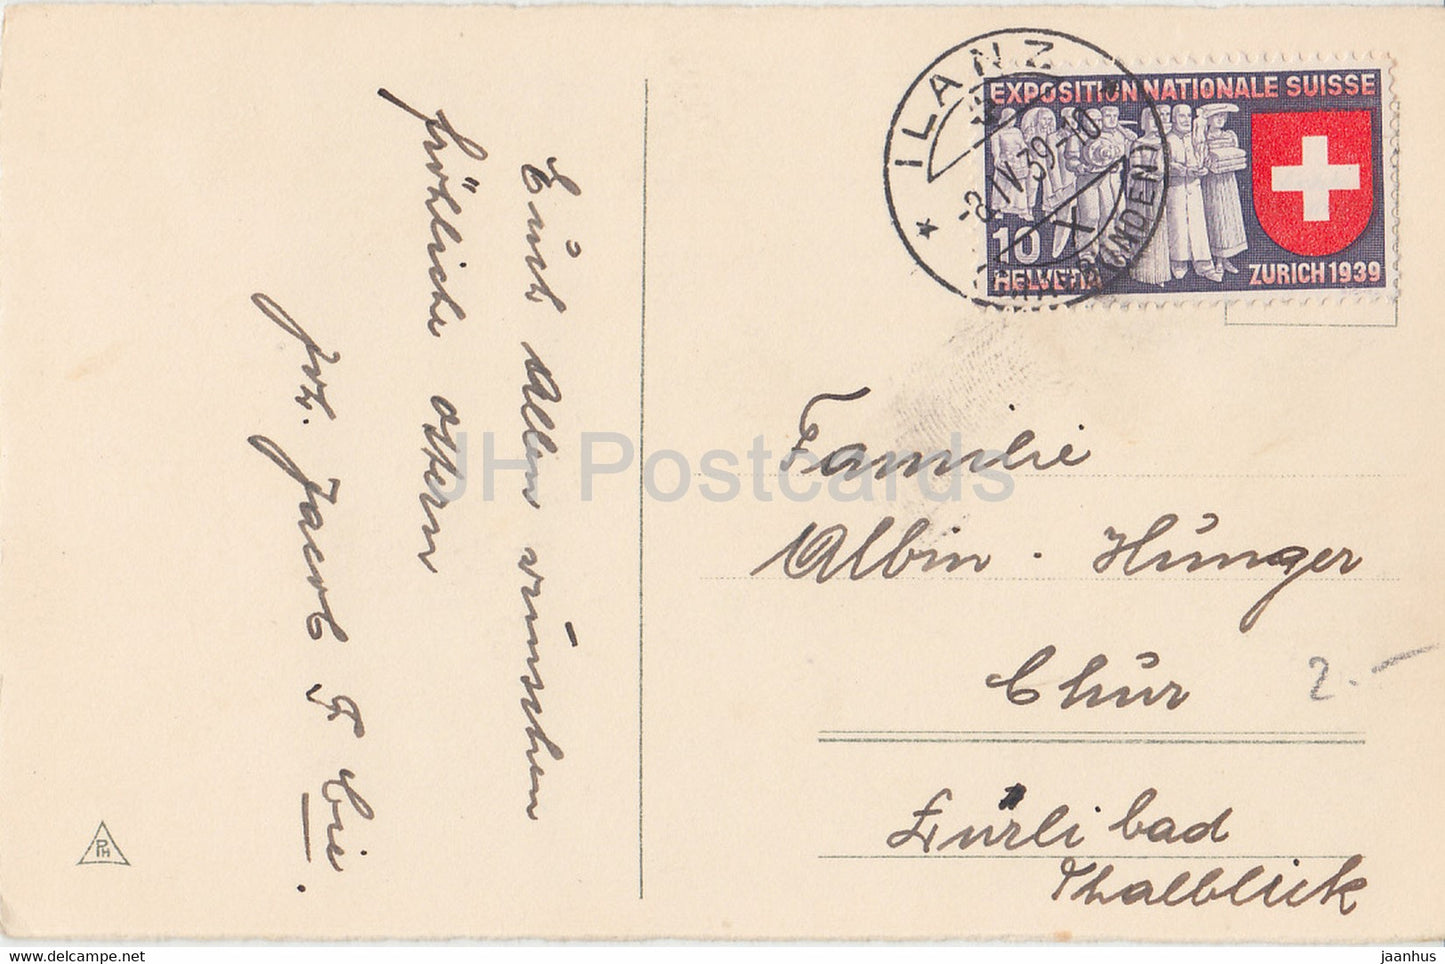 Euch Allen wünschen
fröhliche Ostern
Joh. Jacob & Cie.
ILANZ
-8.IV.39-10
(GRAUBÜNDEN)
EXPOSITION NATIONALE SUISSE
10
HELVETIA
ZURICH 1939
Familie
Albin - Hunger
Chur
Lürlibad
Thalblick
2.-
PH
JH Postcards
www.delcampe.net
jaanhus